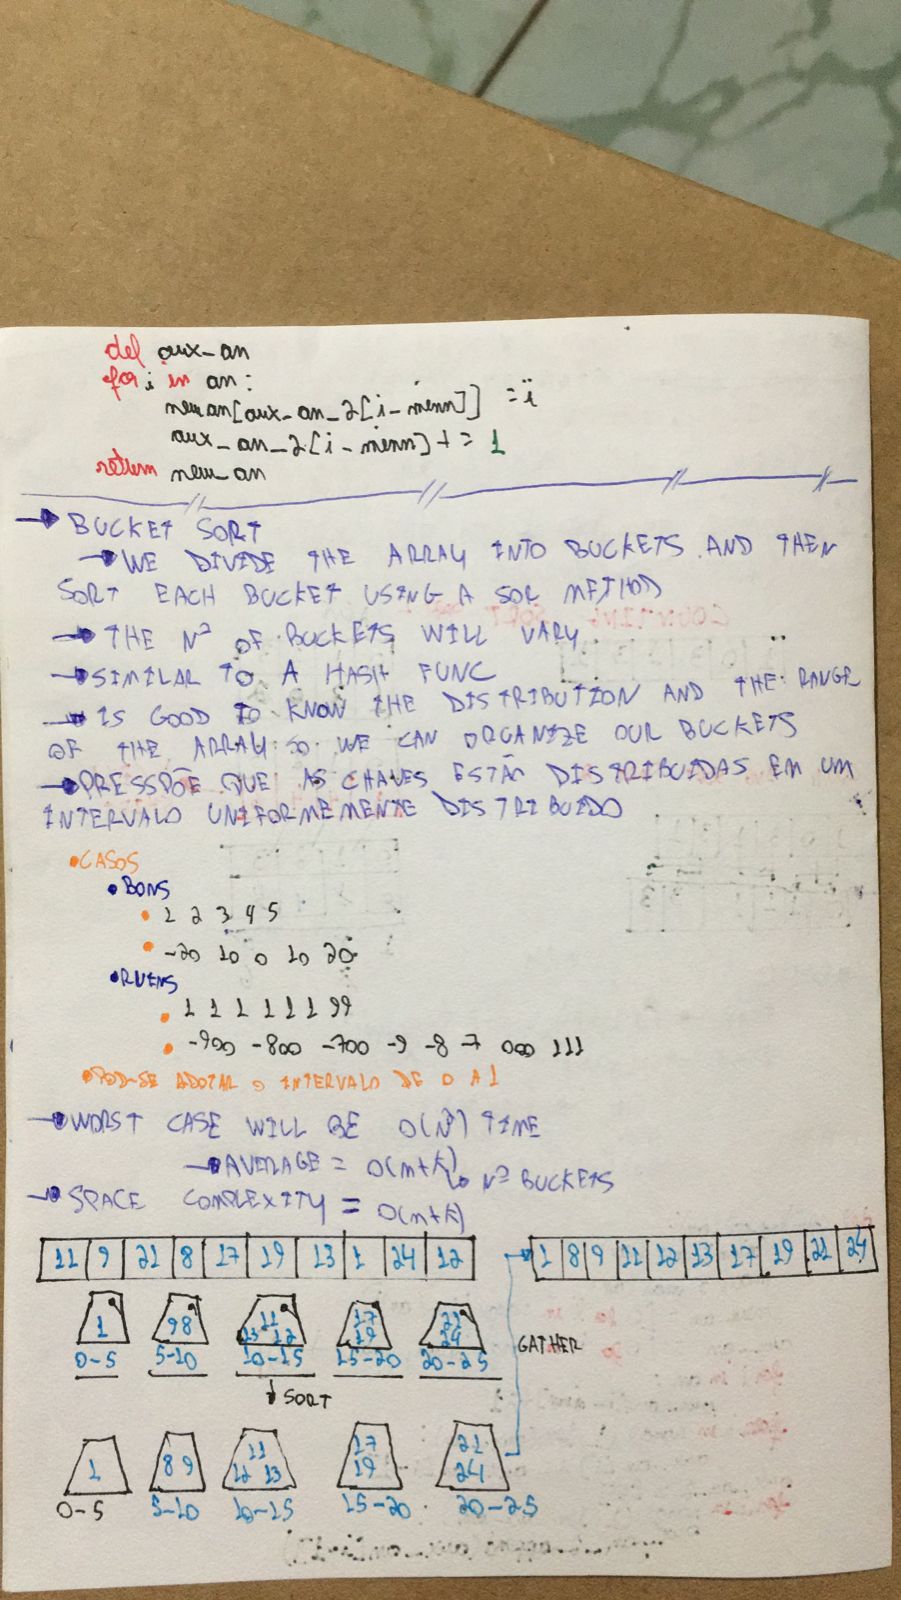 del aux_arr
for i in arr:
newarr[aux_arr_2[i-menn]] = i
aux_arr_2[i-menn] += 1
return new_arr
→ BUCKET SORT
→ WE DIVIDE THE ARRAY INTO BUCKETS AND THEN
SORT EACH BUCKET USING A SOR METHOD
→ THE Nº OF BUCKETS WILL VARY
→ SIMILAR TO A HASH FUNC
→ IS GOOD TO KNOW THE DISTRIBUTION AND THE RANGE
OF THE ARRAY SO WE CAN ORGANIZE OUR BUCKETS
→ PRESSPÕE QUE AS CHAVES ESTÃO DISTRIBUIDAS EM UM
INTERVALO UNIFORMEMENTE DISTRIBUIDO
• CASOS
• BONS
• 1 2 3 4 5
• -20 10 0 10 20
• RUINS
• 1 1 1 1 1 1 99
• -900 -800 -700 -9 -8 -7 000 111
• POD-SE ADOTAR O INTERVALO DE 0 A 1
→ WORST CASE WILL BE O(N²) TIME
→ AVERAGE = O(n+k) ↳ Nº BUCKETS
→ SPACE COMPLEXITY = O(n+k)
11 9 21 8 17 19 13 1 24 12 → 1 8 9 11 12 13 17 19 21 24
1 98 11 13 12 17 19 21 24 GATHER
0-5 5-10 10-15 15-20 20-25
↓ SORT
1 8 9 11 12 13 17 19 21 24
0-5 5-10 10-15 15-20 20-25